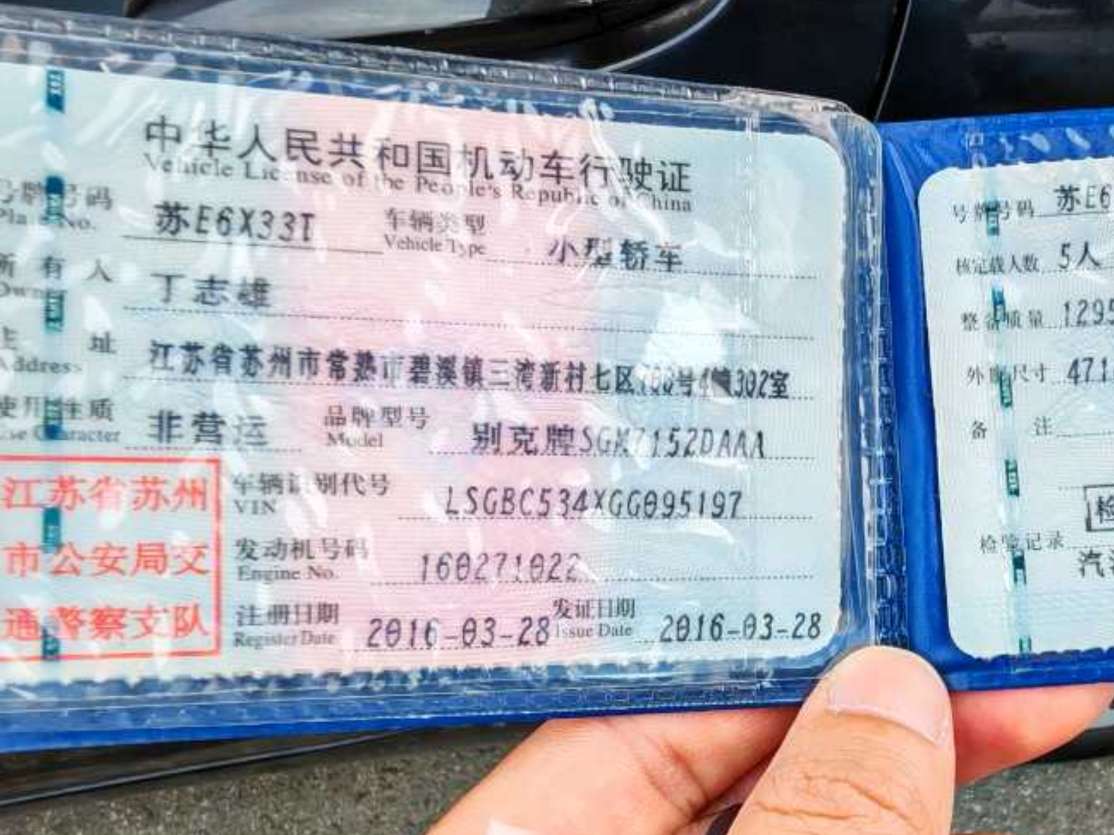 中华人民共和国机动车行驶证
Vehicle License of the People's Republic of China
号牌号码 苏E6X33T 车辆类型 小型轿车
Plate No. Vehicle Type
所有人 丁志雄
Owner
住址 江苏省苏州市常熟市碧溪镇三湾新村七区 号4幢302室
Address
使用性质 非营运 品牌型号 别克牌SGM7152DAAA
Use Character Model
江苏省苏州
市公安局交
通警察支队
车辆识别代号 LSGBC534XGG095197
VIN
发动机号码 160271022
Engine No.
注册日期 2016-03-28 发证日期 2016-03-28
Register Date Issue Date
号牌号码 苏E6
核定载人数 5人
整备质量 129
外廓尺寸 471
备注
检验记录
汽